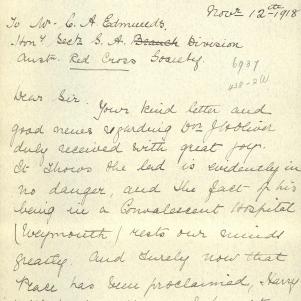 Novr 12th 1918
To Mr. C. A. Edmunds,
Hony Secty S. A. Branch Division
Aust. Red Cross Society.
6937
Dear Sir. Your kind letter and
good news regarding Dvr J Oliver
duly received with great joy.
It shows the lad is evidently in
no danger, and the fact of his
being in a Convalescent Hospital
(Weymouth) rests our minds
greatly. And surely now that
Peace has been proclaimed, Harry